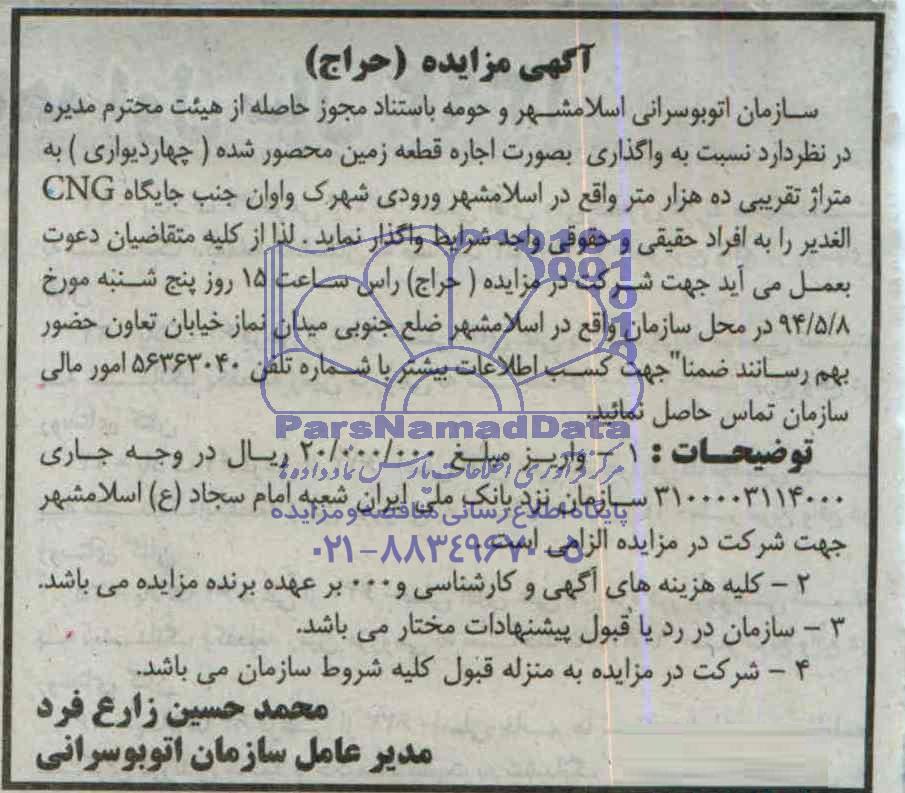 آگهی مزایده (حراج)
سازمان اتوبوسرانی اسلامشهر و حومه باستناد مجوز حاصله از هیئت محترم مدیره
در نظردارد نسبت به واگذاری بصورت اجاره قطعه زمین محصور شده ( چهاردیواری ) به
متراژ تقریبی ده هزار متر واقع در اسلامشهر ورودی شهرک واوان جنب جایگاه CNG
الغدیر را به افراد حقیقی و حقوقی واجد شرایط واگذار نماید . لذا از کلیه متقاضیان دعوت
بعمل می آید جهت شرکت در مزایده ( حراج) راس ساعت ۱۵ روز پنج شنبه مورخ
۹۴/۵/۸ در محل سازمان واقع در اسلامشهر ضلع جنوبی میدان نماز خیابان تعاون حضور
بهم رسانند ضمنا"جهت کسب اطلاعات بیشتر با شماره تلفن ۵۶۳۶۳۰۴۰ امور مالی
سازمان تماس حاصل نمائید.
ParsNamadData
توضیحات : ۱ – واریز مبلغ ۲۰/۰۰۰/۰۰۰ ریال در وجه جاری
مرکز فرآوری اطلاعات پارس نماد داده ها
۳۱۰۰۰۰۳۱۱۴۰۰۰ سازمان نزد بانک ملی ایران شعبه امام سجاد (ع) اسلامشهر
پایگاه اطلاع رسانی مناقصه و مزایده
جهت شرکت در مزایده الزامی است.
۰۲۱-۸۸۳۴۹۶۷۰-۵
۲ – کلیه هزینه های آگهی و کارشناسی و۰۰۰ بر عهده برنده مزایده می باشد.
۳ – سازمان در رد یا قبول پیشنهادات مختار می باشد.
۴ – شرکت در مزایده به منزله قبول کلیه شروط سازمان می باشد.
محمد حسین زارع فرد
مدیر عامل سازمان اتوبوسرانی